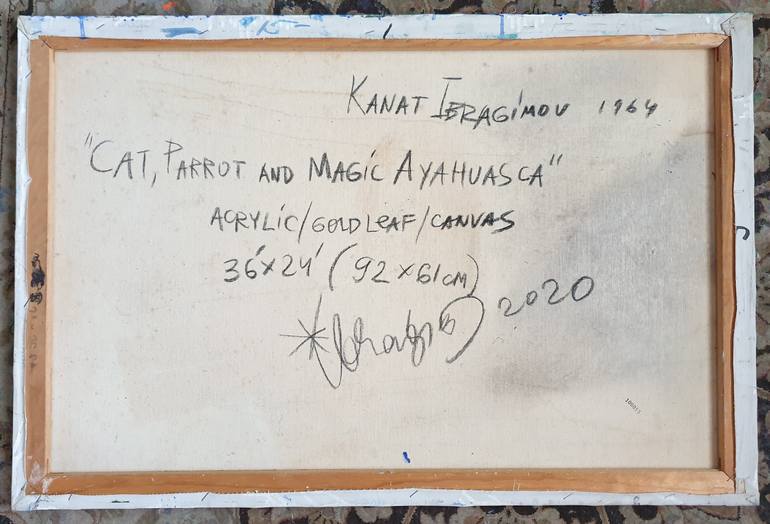 KANAT IBRAGIMOV 1964
"CAT, PARROT AND MAGIC AYAHUASCA"
ACRYLIC/GOLD LEAF/CANVAS
36'x24' (92x61cm)
2020